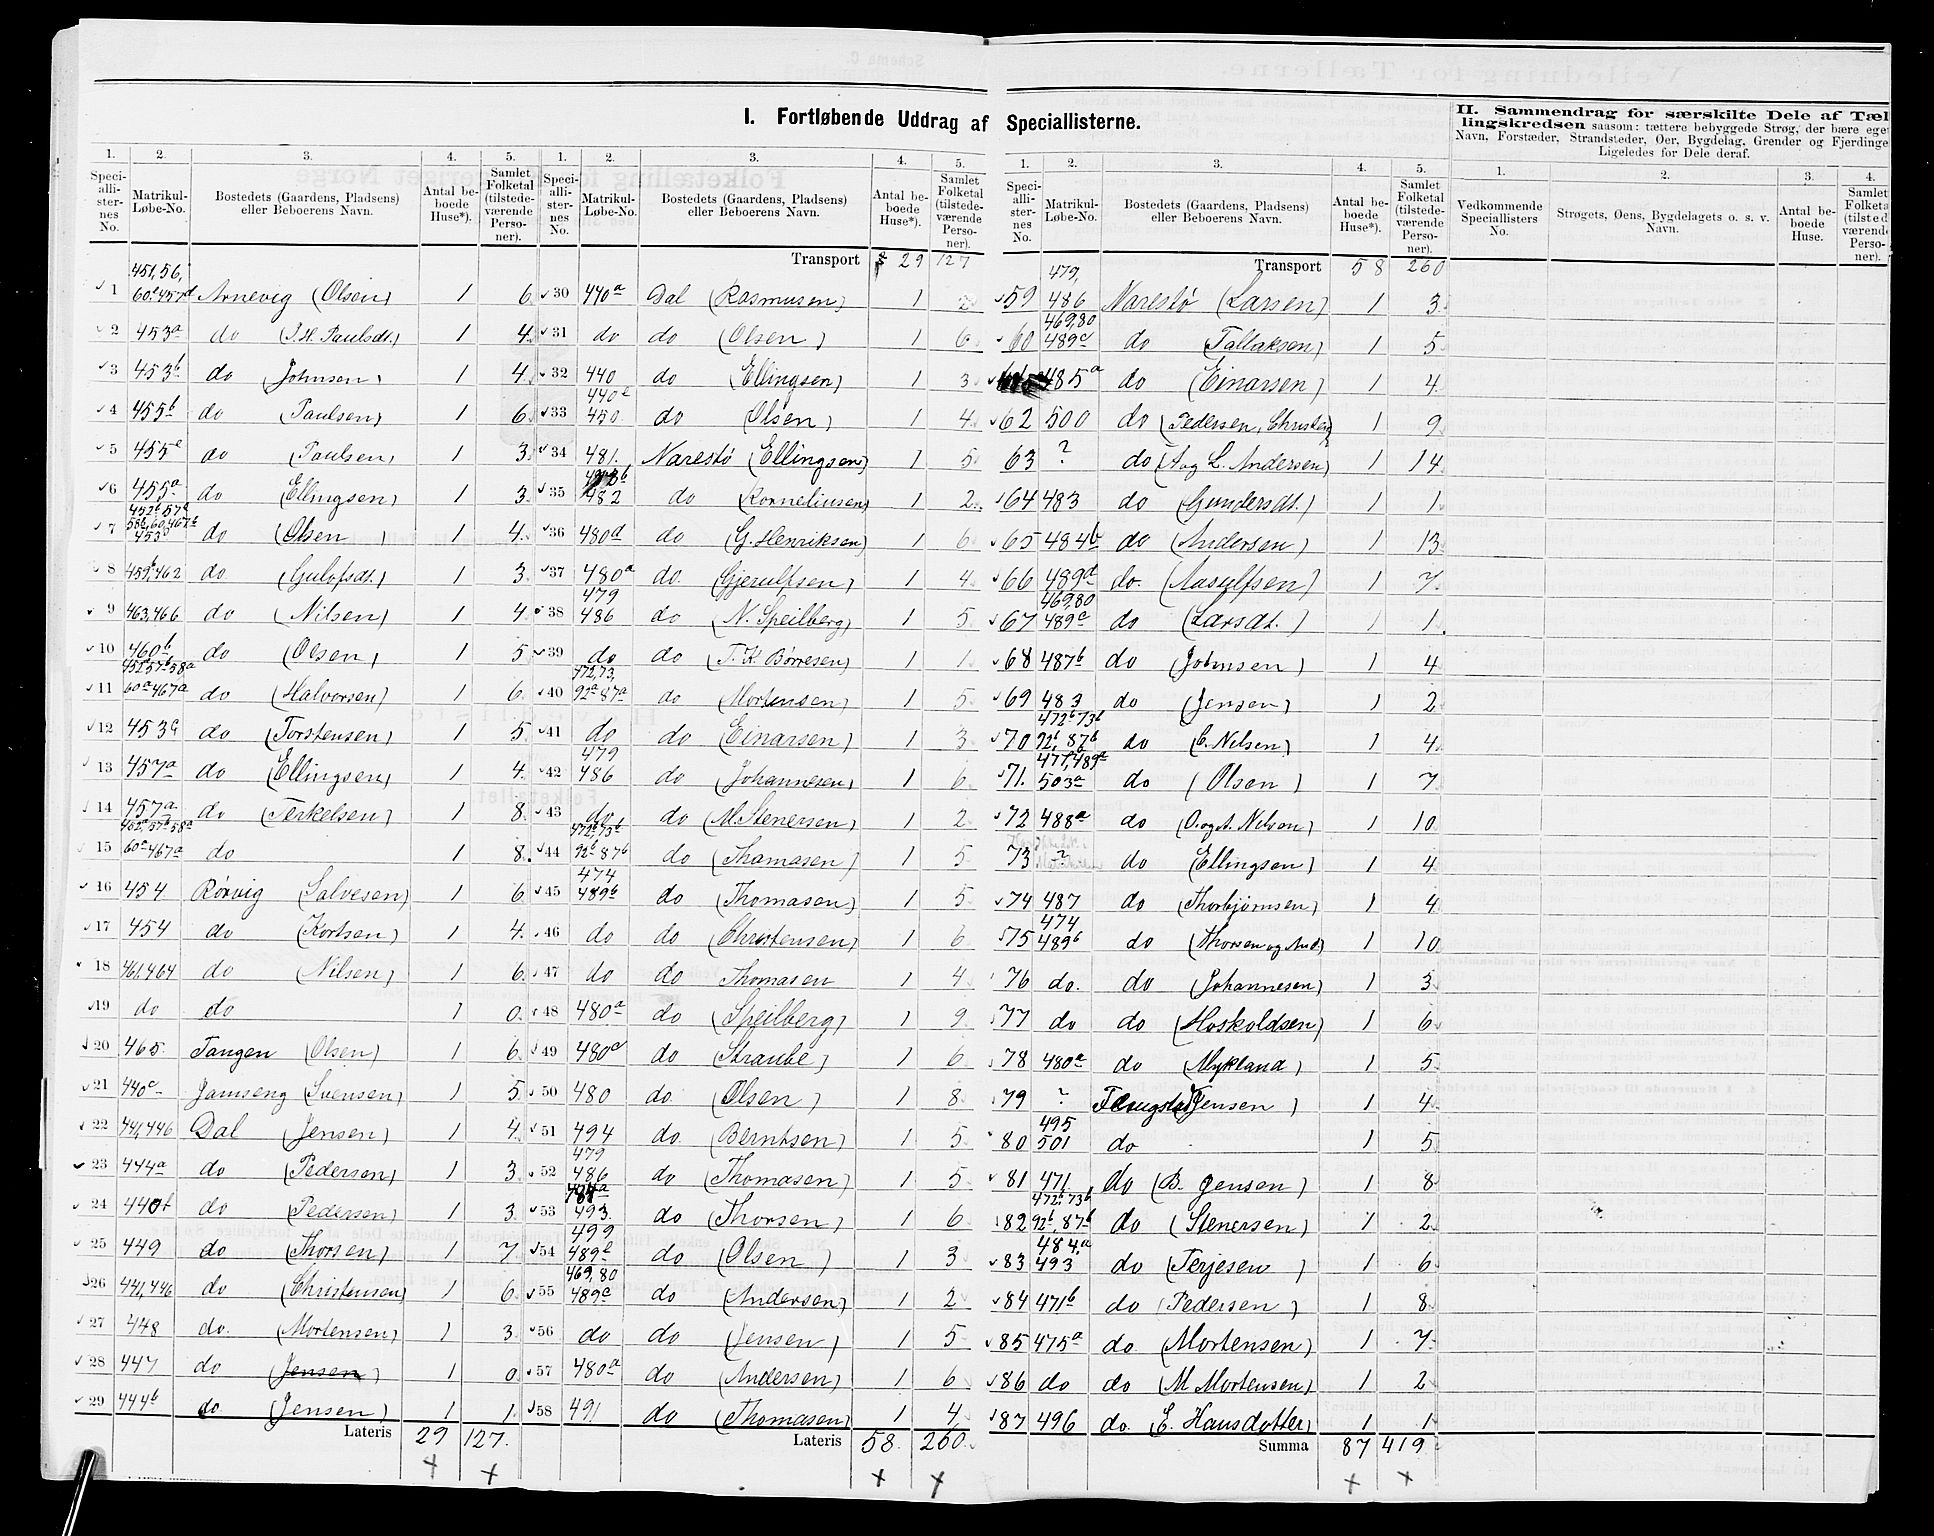 I. Fortløbende Uddrag af Speciallisterne.
II. Sammendrag for særskilte Dele af Tæl-
lingskredsen saasom: tættere bebyggede Strøg, der bære eget
Navn, Forstæder, Strandsteder, Øer, Bygdelag, Grender og Fjerdinger
Ligeledes for Dele deraf.
1. 2. 3. 4. 5. 1. 2. 3. 4. 5. 1. 2. 3. 4. 5. 1. 2. 3. 4.
Speciallisternes No. Matrikul-Løbe-No. Bostedets (Gaardens, Pladsens) eller Beboerens Navn. Antal beboede Huse*). Samlet Folketal (tilstedeværende Personer).
Speciallisternes No. Matrikul-Løbe-No. Bostedets (Gaardens, Pladsens) eller Beboerens Navn. Antal beboede Huse*). Samlet Folketal (tilstedeværende Personer).
Speciallisternes No. Matrikul-Løbe-No. Bostedets (Gaardens, Pladsens) eller Beboerens Navn. Antal beboede Huse*). Samlet Folketal (tilstedeværende Personer).
Vedkommende Speciallisters No. Strøgets, Øens, Bygdelagets o. s. v. Navn. Antal beboede Huse. Samlet Folketal (tilstedeværende Personer).
1 451, 56, 60 457d Arnevig (Olsen) 1 6
2 453a do (J.H. Paulsdt.) 1 4
3 453b do (Johnsen) 1 4
4 455b do (Paulsen) 1 6
5 455c do (Paulsen) 1 3
6 455a do (Ellingsen) 1 3
7 do (Olsen) 1 4
8 459b,462 do (Gulofsdt.) 1 3
9 463,466 do (Nilsen) 1 4
10 460b do (Olsen) 1 5
11 452b 57b 58a 60a 467a do (Halvorsen) 1 6
12 453c do (Torstensen) 1 5
13 457a do (Ellingsen) 1 4
14 457a do (Terkelsen) 1 8
15 452a,57b 58a 60a 467a do 1 8
16 454 Rørvig (Salvesen) 1 6
17 454 do (Kortsen) 1 4
18 461,464 do (Nilsen) 1 6
19 do do 1 0
20 465 Tangen (Olsen) 1 6
21 440c Jamseng (Svensen) 1 5
22 441,446 Dal (Jensen) 1 4
23 444a do (Pedersen) 1 3
24 440b do (Pedersen) 1 3
25 449 do (Thorsen) 1 7
26 441,446 do (Christensen) 1 6
27 448 do (Mortensen) 1 3
28 447 do (Jensen) 1 0
29 444b do (Jensen) 1 1
Lateris 29 127.
Transport 29 127
30 440a Dal (Rasmusen) 1 2
31 do do (Olsen) 1 6
32 440 do (Ellingsen) 1 3
33 440c 450 do (Olsen) 1 4
34 481 Narestø (Ellingsen) 1 5
35 482 do (Korneliusen) 1 2
36 480d do (G. Henriksen) 1 6
37 480a do (Gjerulfsen) 1 4
38 479 486 do (N. Speilberg) 1 5
39 do do (T. K. Børresen) 1 1
40 472,73, 92a 87a do (Mortensen) 1 5
41 do do (Einarsen) 1 3
42 479 486 do (Johannesen) 1 6
43 do do (M. Stenersen) 1 2
44 472b,73b 92b 87b do (Thomasen) 1 5
45 474 489b do (Thomasen) 1 5
46 do do (Christensen) 1 6
47 do do Thomasen 1 4
48 480a do (Speilberg) 1 9
49 480c do (Straube) 1 6
50 480 do (Olsen) 1 8
51 494 do (Berntsen) 1 5
52 479 486 do (Thomasen) 1 5
53 493. do (Thorsen) 1 6
54 499 489e do (Olsen) 1 3
55 469,80 489c do (Andersen) 1 2
56 do do (Jensen) 1 5
57 480a do (Andersen) 1 6
58 491 do (Thomasen) 1 4
Lateris 58. 260.
Transport 58 260
59 479, 486 Narestø (Larsen) 1 3
60 469,80 489c do (Tallaksen) 1 5
485a do (Einarsen) 1 4
62 500 do (Pedersen, Christens) 1 9
63 ? do (Aug L. Andersen) 1 14
64 483 do (Gundersdt.) 1 1
65 484b do (Andersen) 1 13
66 489d do. (Aasulfsen) 1 7
67 469,80 489c do (Larsdt.) 1 1
68 487b do (Johnsen) 1 4
69 483 do (Jensen) 1 2
70 472b 73b 92b 87b do (C. Nilsen) 1 4
71. 477,489a 503a do (Olsen) 1 7
72 488a do (O. og A. Nilsen) 1 10
73 ? do (Ellingsen) 1 4
74 487 do (Thorbjørnsen) 1 4
75 474 489b do (Thorsen og And.) 1 10
76 do. do (Johannesen) 1 3
77 do do (Hoskoldsen) 1 6
78 480a do (Mykland) 1 5
79 ? Flaugstad (Jensen) 1 4
80 495 501 do 1 5
81 471 do (B. Jensen) 1 8
82 472b,73b 92b,87b do (Stenersen) 1 2
83 484a 493 do (Terjesen) 1 6
84 471b do (Pedersen) 1 8
85 475a do (Mortensen) 1 7
86 do do (M Mortensen) 1 2
87 496 do. (E. Hansdotter) 1 1
Summa 87 419